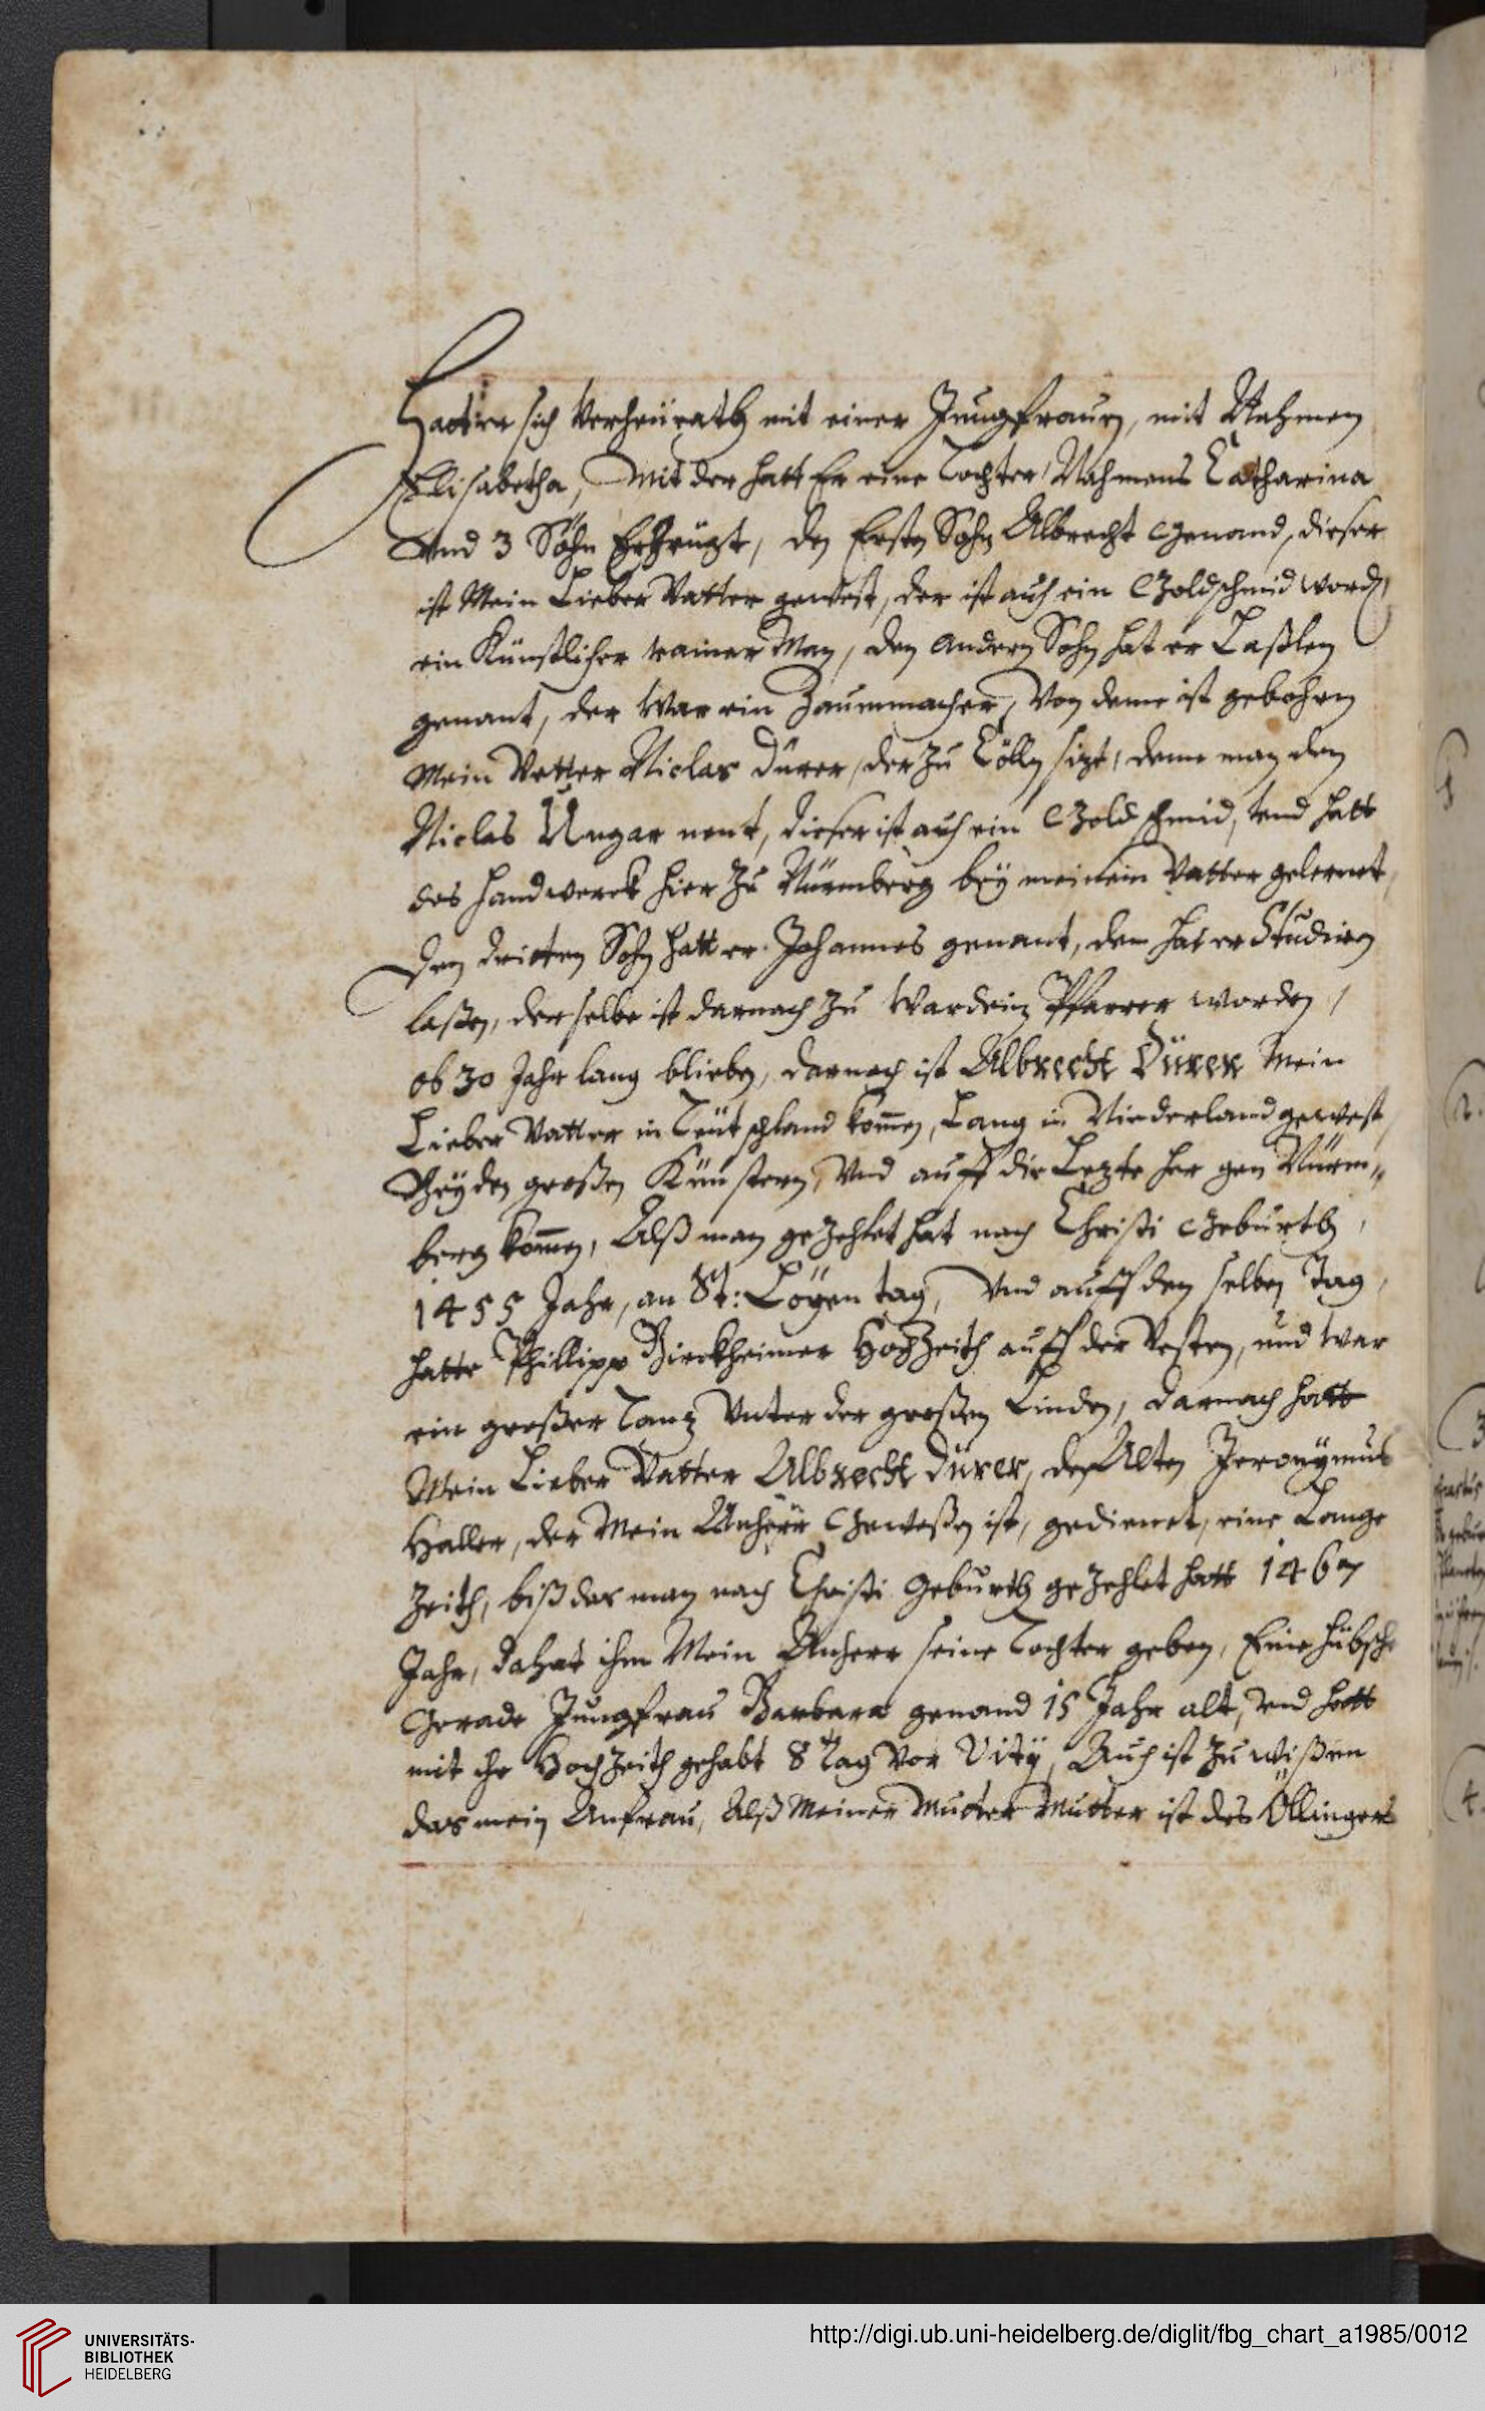 Hatt er sich Verheürath mit einer Jungfrauen, mit Nahmen
Elisabetha, Mit der hatt Er eine Tochter, Nahmens Catharina
Vnd 3 Söhn Erzeugt, den Ersten Sohn Albrecht Genand, dieser
ist Mein Lieber Vatter gewest, der ist auch ein Goldschmid word,
ein Künstlicher rainer Man, den andern Sohn hat er Laßlen
genant, der War ein Zaummacher, Von deme ist gebohren
Mein Vetter Niclas Dürer, der zu Cölln sizt, deme man den
Niclas Ungar nent, dieser ist auch ein Goldschmid, vnd hatt
das Handwerck hier zu Nürmberg bey meinem Vatter gelernet,
Den dritten Sohn hatt er Johannes genant, den hat er Studiren
laßen, derselbe ist darnach zu Wardein Pfarrer worden,
ob 30 Jahr lang blieben, darnach ist Albrecht Dürer Mein
Lieber Vatter in Teutschland komen, Lang in Niederland gewest,
Bey den großen Künstern, Vnd auff die Lezte her gen Nürm-
berg komen, Alß man gezehlet hat nach Christi Geburth,
1455 Jahr, an St: Loÿen tag, Vnd auff den selben Tag,
hatte Phillipp Birckheimer Hochzeith auff der Vesten, und War
ein großer Tanz Vnter der großen Linden, darnach hatt
Mein Lieber Vatter Albrecht Dürer, dem Alten Jeronymus
Haller, der Mein Anherr Geweßen ist, gedienet, eine Lange
Zeith, biß das man nach Christi Geburth gezehlet hatt 1467
Jahr, da hat ihm Mein Anherr seine Tochter geben, Eine hübsche
Gerade Jungfrau Barbara genand 15 Jahr alt, vnd hatt
mit ihr Hochzeith gehabt 8 Tag Vor Vity, Auch ist zu wißen
das mein Anfrau, Alß Meiner Mutter Mutter ist des Öllingers
UNIVERSITÄTS-
BIBLIOTHEK
HEIDELBERG
http://digi.ub.uni-heidelberg.de/diglit/fbg_chart_a1985/0012